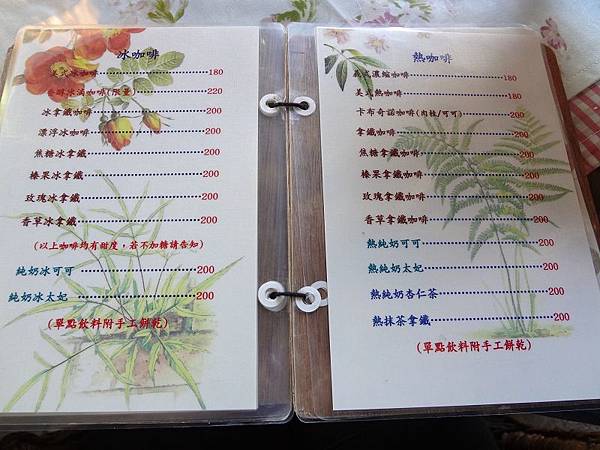 冰咖啡
美式冰咖啡 180
香醇冰滴咖啡(限量) 220
冰拿鐵咖啡 200
漂浮冰咖啡 200
焦糖冰拿鐵 200
榛果冰拿鐵 200
玫瑰冰拿鐵 200
香草冰拿鐵 200
(以上咖啡均有甜度,若不加糖請告知)
純奶冰可可 200
純奶冰太妃 200
(單點飲料附手工餅乾)
熱咖啡
義式濃縮咖啡 180
美式熱咖啡 180
卡布奇諾咖啡(肉桂/可可) 200
拿鐵咖啡 200
焦糖拿鐵咖啡 200
榛果拿鐵咖啡 200
玫瑰拿鐵咖啡 200
香草拿鐵咖啡 200
熱純奶可可 200
熱純奶太妃 200
熱純奶杏仁茶 200
熱抹茶拿鐵 200
(單點飲料附手工餅乾)